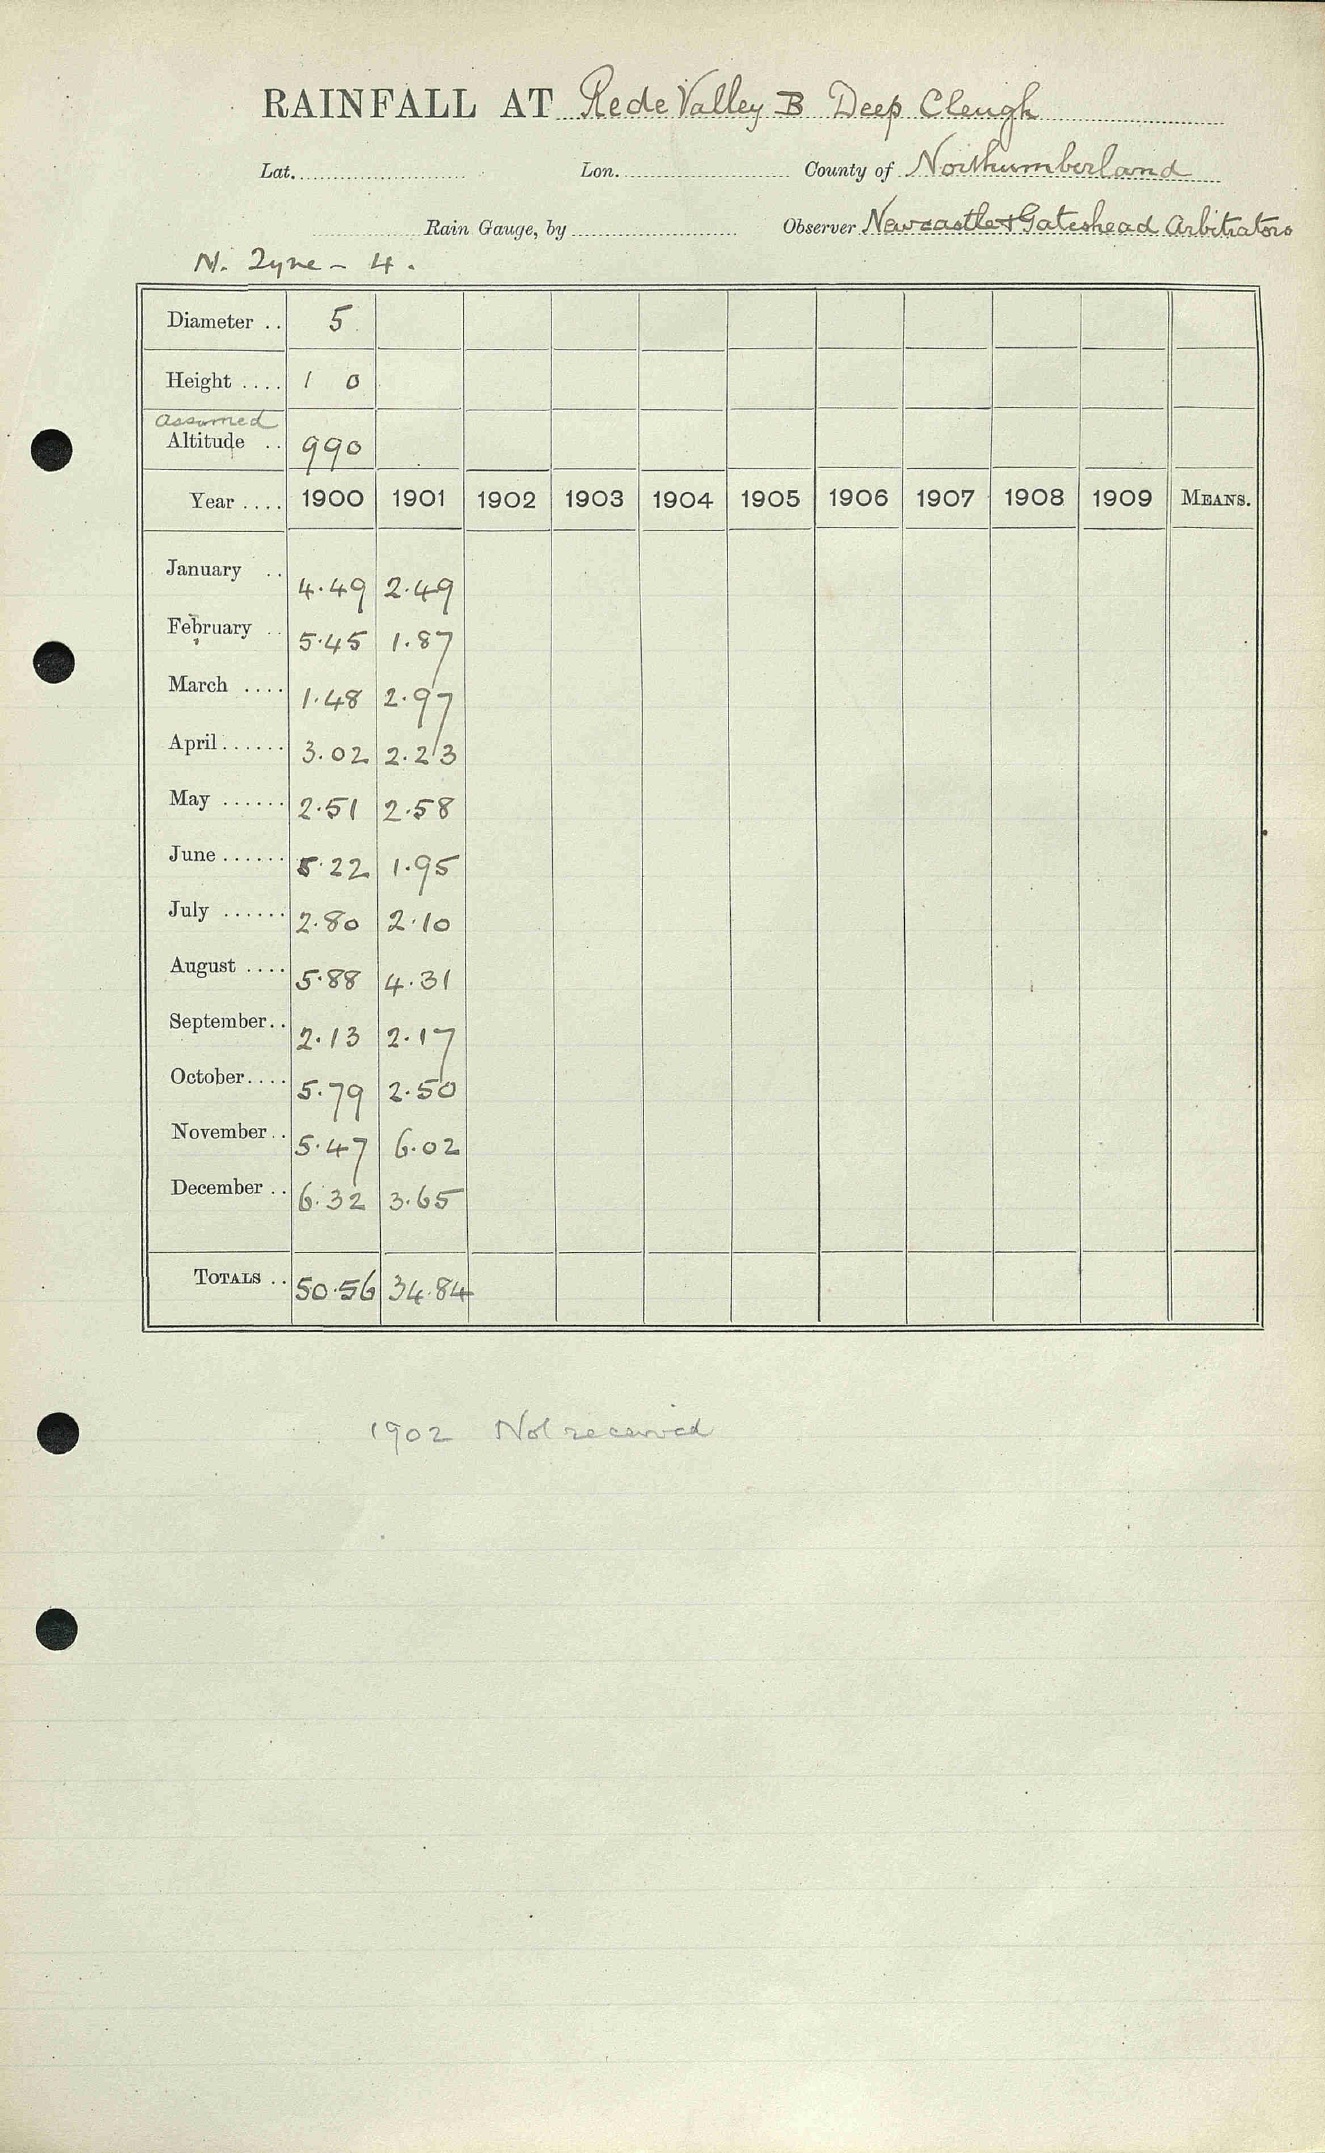 RAINFALL AT Rede Valley B Deep Cleugh
Lat. Lon. County of Northumberland
Rain Gauge, by Observer Newcastle & Gateshead Arbitrators
N. Tyne - 4.
Diameter .. 5
Height .... 1 0
assumed
Altitude .. 990
Year .... 1900 1901 1902 1903 1904 1905 1906 1907 1908 1909 MEANS.
January .. 4.49 2.49
February .. 5.45 1.87
March .... 1.48 2.97
April ...... 3.02 2.23
May ...... 2.51 2.58
June ...... 5.22 1.95
July ...... 2.80 2.10
August .... 5.88 4.31
September.. 2.13 2.17
October.... 5.79 2.50
November.. 5.47 6.02
December .. 6.32 3.65
TOTALS .. 50.56 34.84
1902 Not received